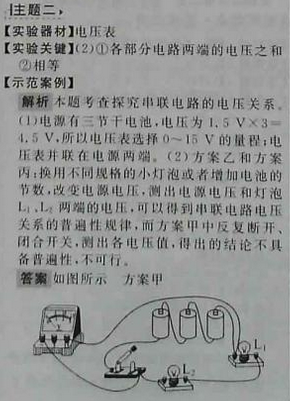 主题二
【实验器材】电压表
【实验关键】(2)①各部分电路两端的电压之和
②相等
【示范案例】
解析 本题考查探究串联电路的电压关系。
(1)电源有三节干电池,电压为 1.5 V×3=
4.5 V,所以电压表选择 0～15 V 的量程;电
压表并联在电源两端。(2)方案乙和方案
丙:换用不同规格的小灯泡或者增加电池的
节数,改变电源电压,测出电源电压和灯泡
L₁、L₂ 两端的电压,可以得到串联电路电压
关系的普遍性规律,而方案甲中反复断开、
闭合开关,测出各电压值,得出的结论不具
备普遍性,不可行。
答案 如图所示 方案甲
L₁
L₂